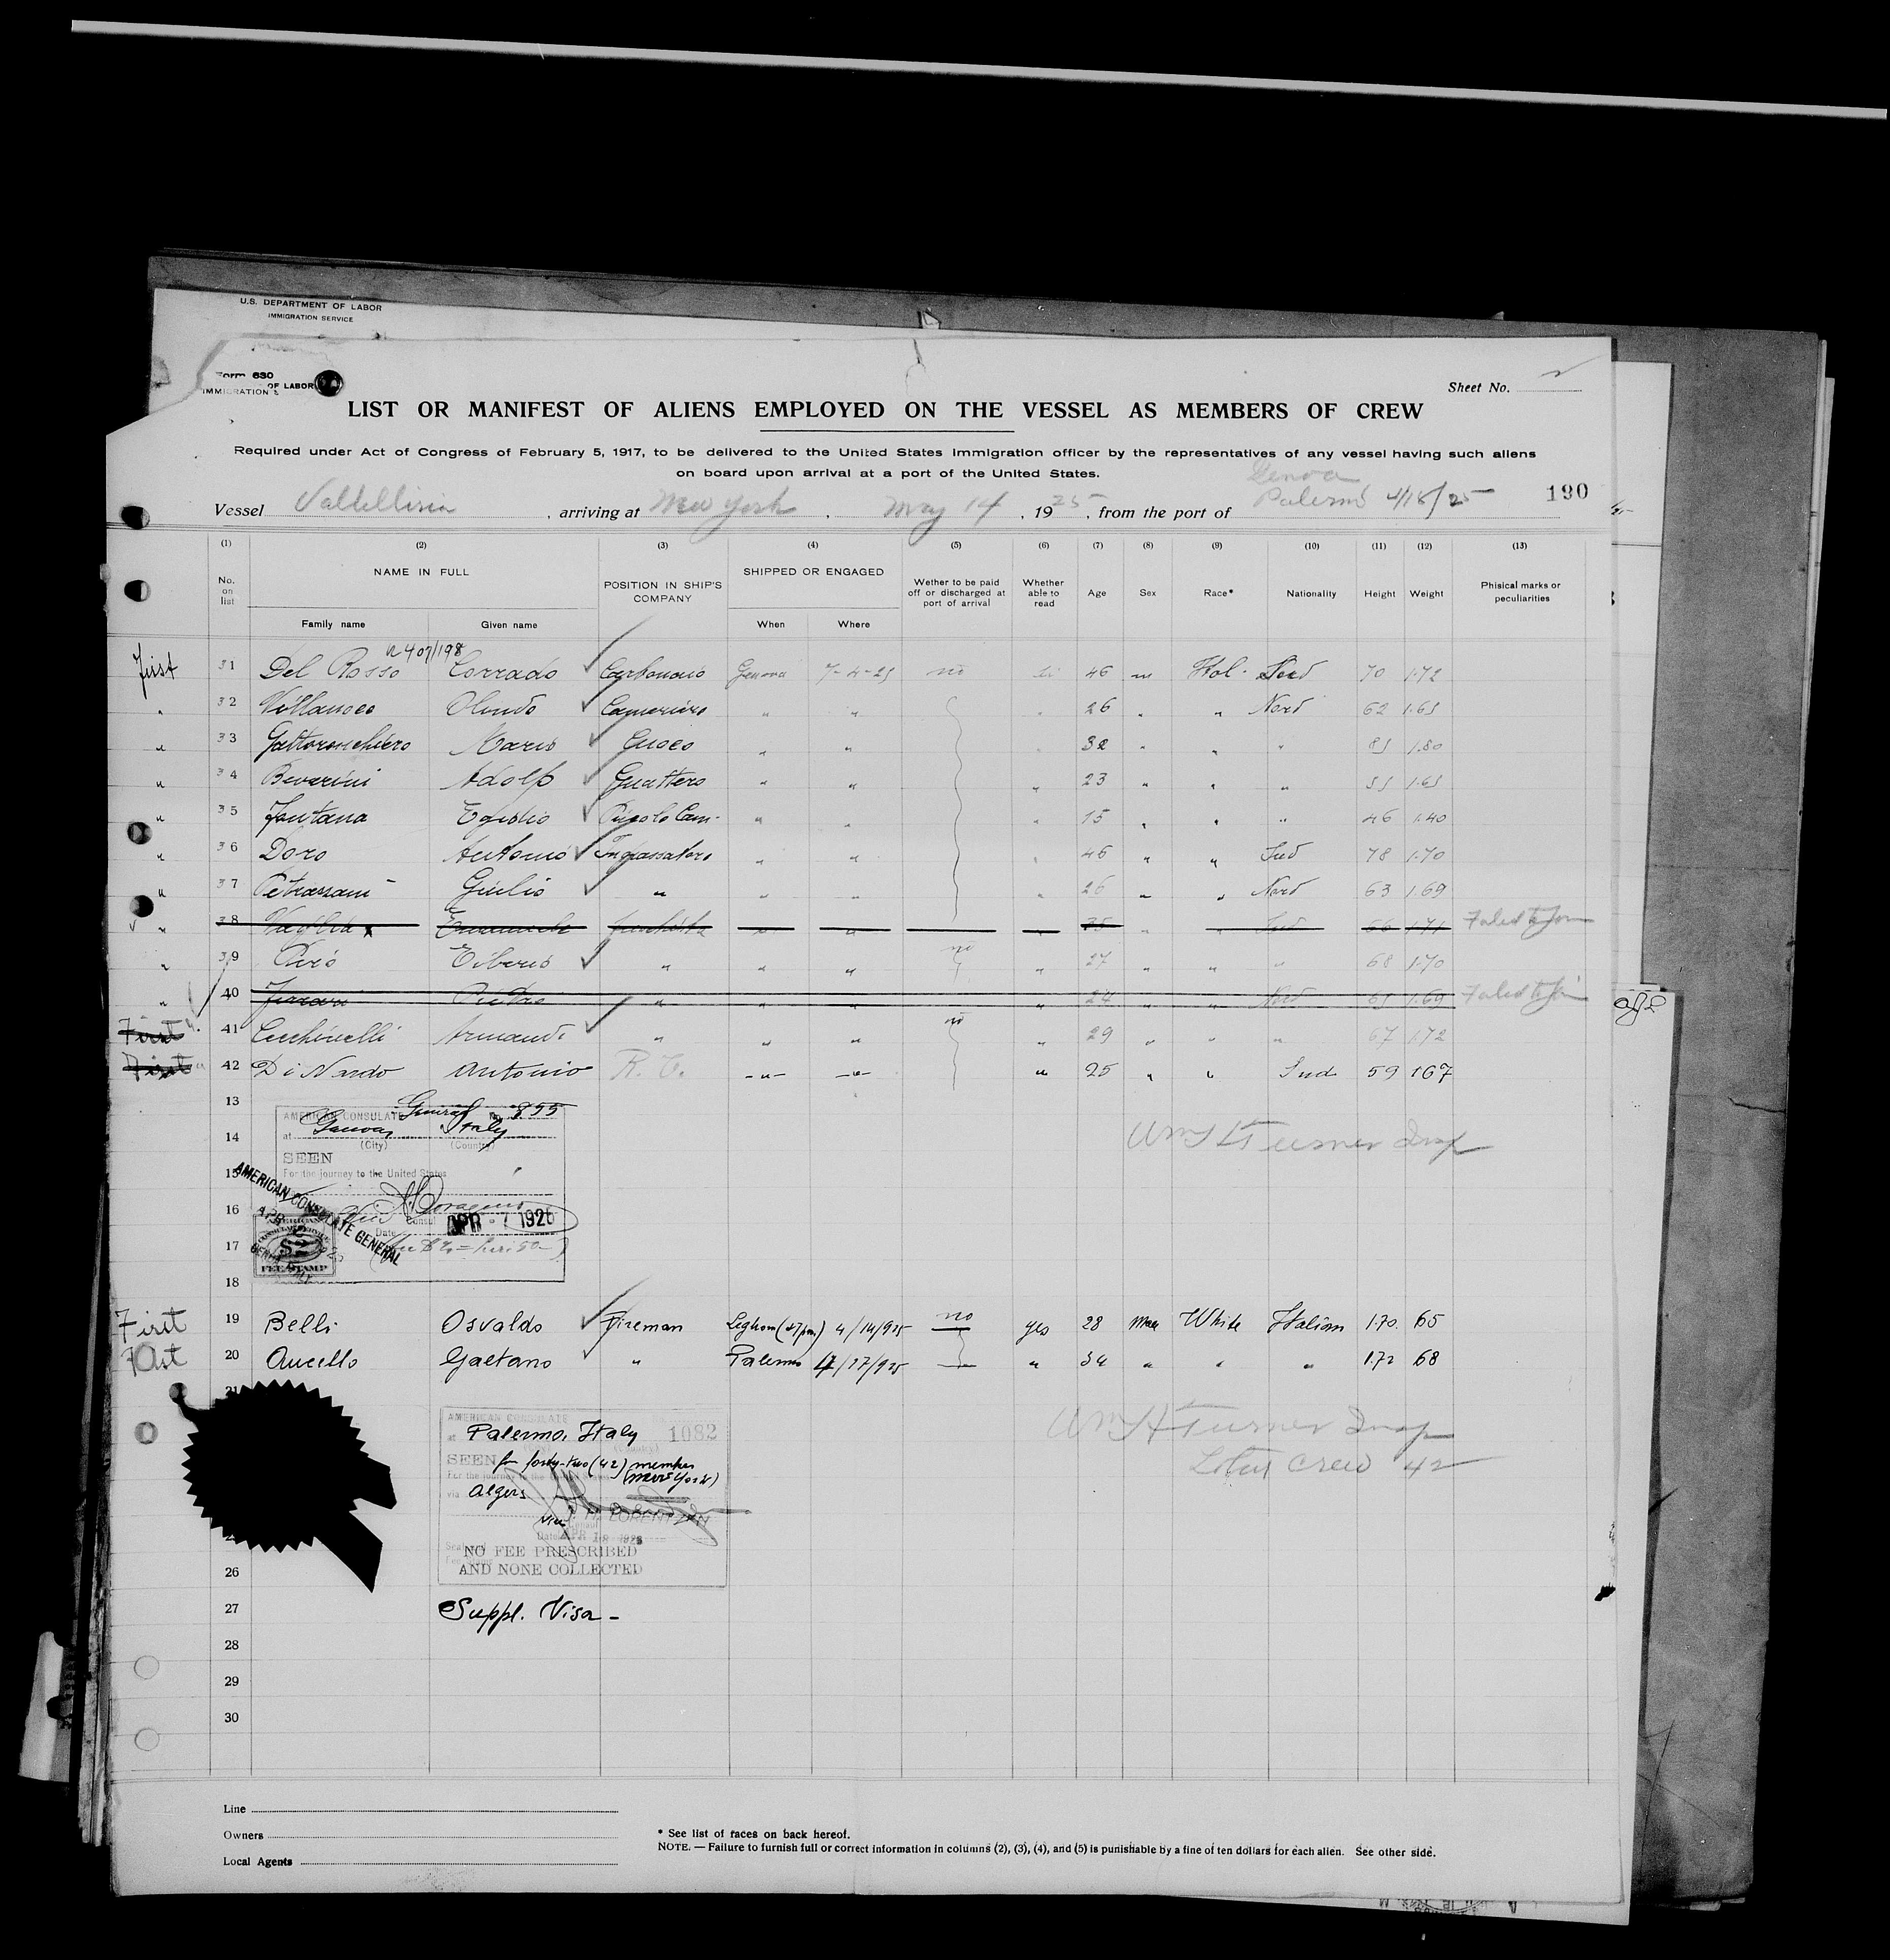 U.S. DEPARTMENT OF LABOR
IMMIGRATION SERVICE
Form 630
OF LABOR
IMMIGRATION S
Sheet No. 2
LIST OR MANIFEST OF ALIENS EMPLOYED ON THE VESSEL AS MEMBERS OF CREW
Required under Act of Congress of February 5, 1917, to be delivered to the United States Immigration officer by the representatives of any vessel having such aliens
on board upon arrival at a port of the United States.
Genoa
Vessel Valtellina, arriving at New York, May 14, 1925, from the port of Palermo 4/18/25
190
(1) (2) (3) (4) (5) (6) (7) (8) (9) (10) (11) (12) (13)
No. on list NAME IN FULL POSITION IN SHIP'S COMPANY SHIPPED OR ENGAGED Wether to be paid off or discharged at port of arrival Whether able to read Age Sex Race* Nationality Height Weight Phisical marks or peculiarities
Family name Given name When Where
First 31 Del Rosso Corrado Carbonaio Genova 7-4-25 no si 46 m Ital. Sud 70 1.72
" 32 Olindo Cameriere " " " 26 " " Nord 62 1.65
" 33 Mario Cuoco " " " 32 " " " 85 1.80
" 34 Beverini Adolfo Guattero " " " 23 " " " 55 1.65
" 35 Fontana Egidio Piccolo Cam. " " " 15 " " " 46 1.40
" 36 Doro Antonio Ingrassatore " " " 46 " " Sud 78 1.70
" 37 Giulio " " " " 26 " " Nord 63 1.69
" 38 Vaglia Emanuele Fuochista " " " 35 " " Sud 66 1.71 Failed to join
" 39 Piró " " " no " 27 " " " 68 1.70
" 40 Pietro " " " " 24 " " Nord 65 1.69 Failed to join
First " 41 Cecchinelli Armando " " " no " 29 " " " 67 1.72
First " 42 Di Nardo Antonio R. T. -"- -"- " 25 " " Sud 59 167
13
AMERICAN CONSULATE General No. 855
14 at Genoa, Italy
(City) (Country)
Wm H Turner Insp
SEEN
15 For the journey to the United States
AMERICAN CONSULATE GENERAL
16 Vice Consul
Date APR - 7 1925
17
FEE STAMP
18
First 19 Belli Osvaldo Fireman Leghorn 4/14/925 no yes 28 Male White Italian 1.70. 65
First 20 Aucello Gaetano " Palermo 4/17/925 — " 34 " " " 1.72 68
21
AMERICAN CONSULATE
at Palermo, Italy 1082
SEEN for forty-two (42) member
For the journey to the United States (New York)
via Algers
Wm H Turner Insp
Total Crew 42
NO FEE PRESCRIBED
AND NONE COLLECTED
26
27 Suppl. Visa -
28
29
30
Line
Owners
Local Agents
* See list of races on back hereof.
NOTE. — Failure to furnish full or correct information in columns (2), (3), (4), and (5) is punishable by a fine of ten dollars for each alien. See other side.